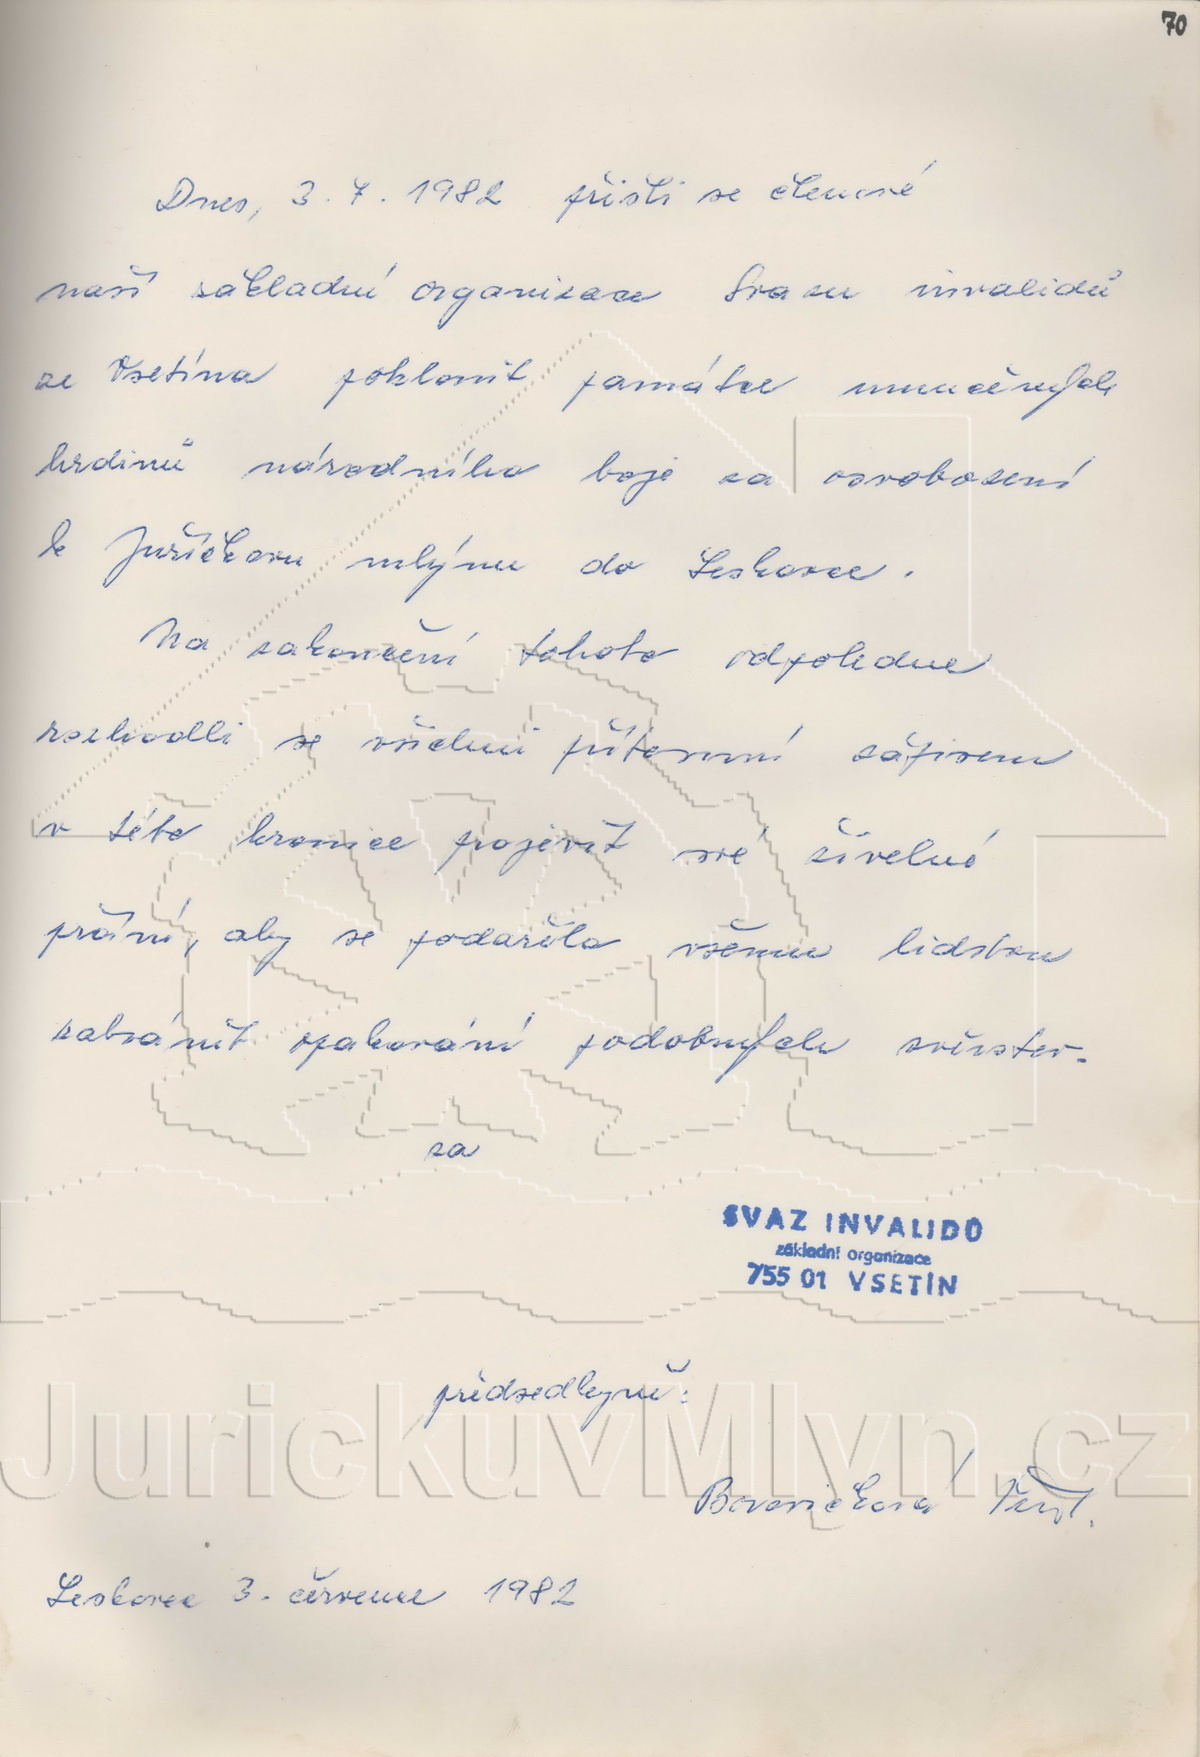 70
Dnes, 3. 7. 1982 přišli se členové
naší základní organizace Svazu invalidů
ze Vsetína poklonit památce umučených
hrdinů národního boje za osvobození
k Juříčkovu mlýnu do Leskovce.
Na zakončení tohoto odpoledne
rozhodli se všichni přítomní zápisem
v této kronice projevit své
přání, aby se podařilo všemu lidstvu
zabránit opakování podobných zvěrstev.
za
SVAZ INVALIDŮ
základní organizace
755 01 VSETÍN
předsedkyně:
JurickuvMlyn.cz
Leskovec 3. července 1982